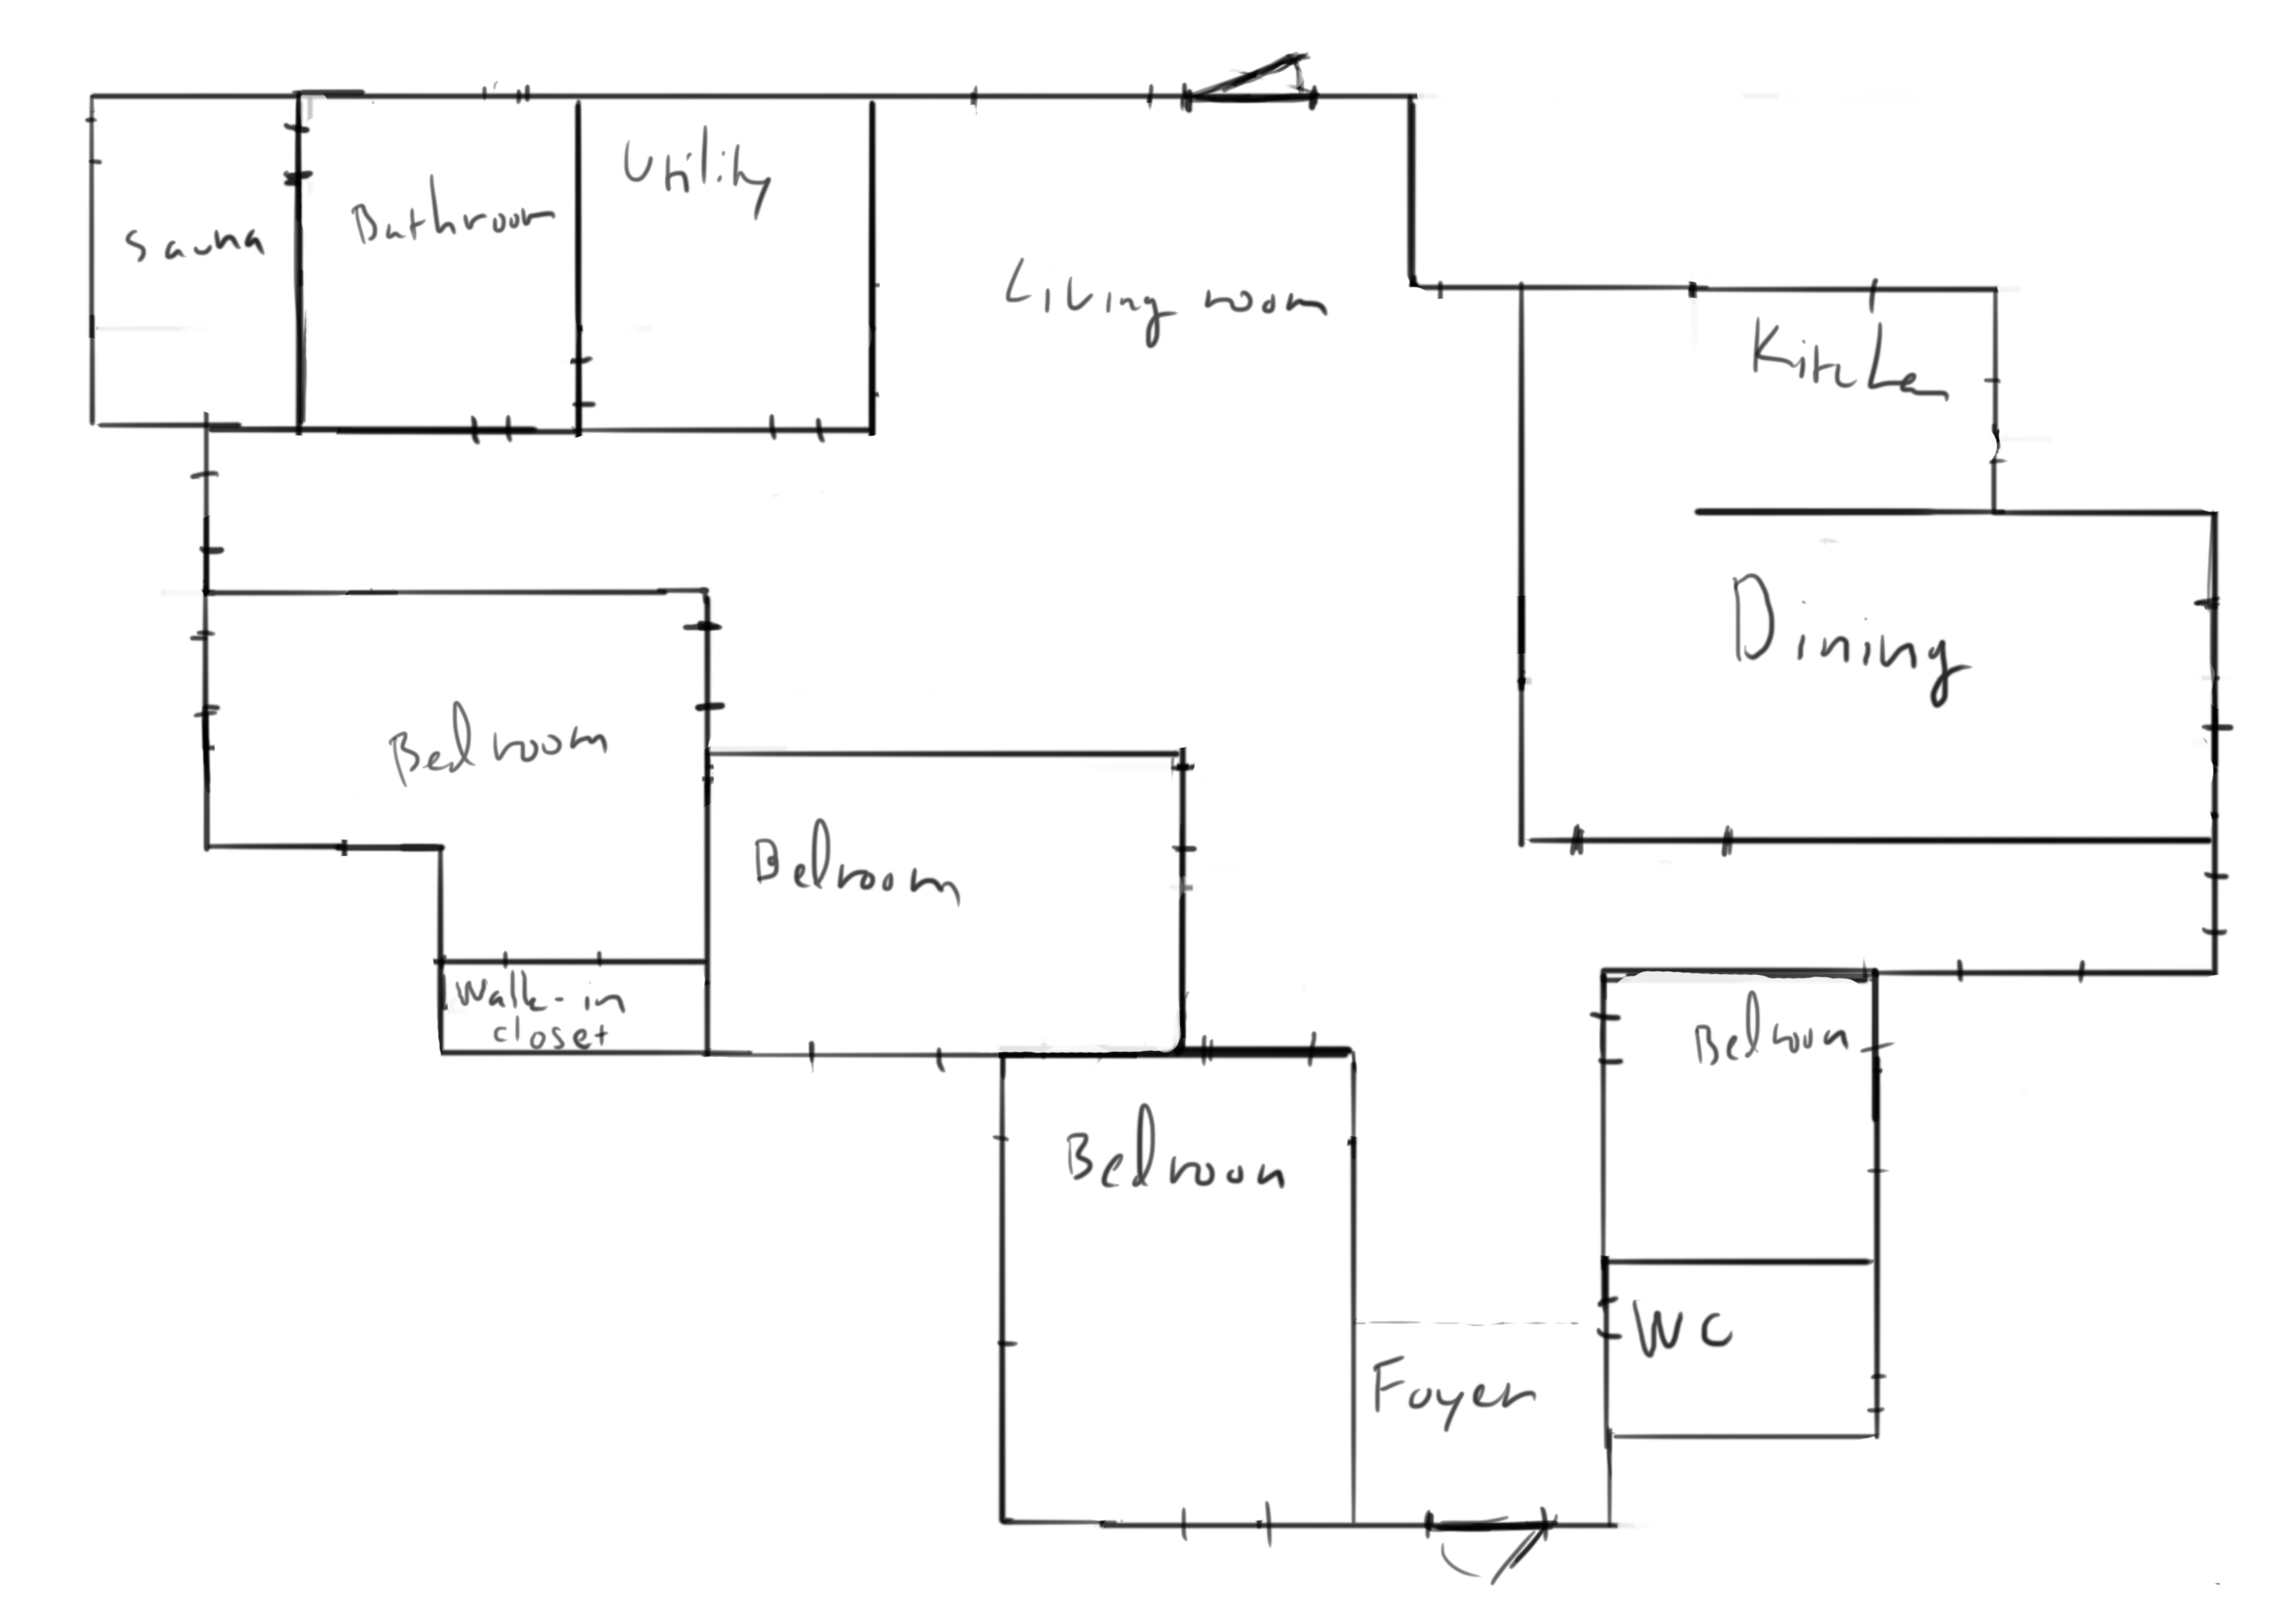 Utility
Bathroom
Sauna
Living room
Kitchen
Dining
Bedroom
Bedroom
Walk-in
closet
Bedroom
Bedroom
WC
Foyer